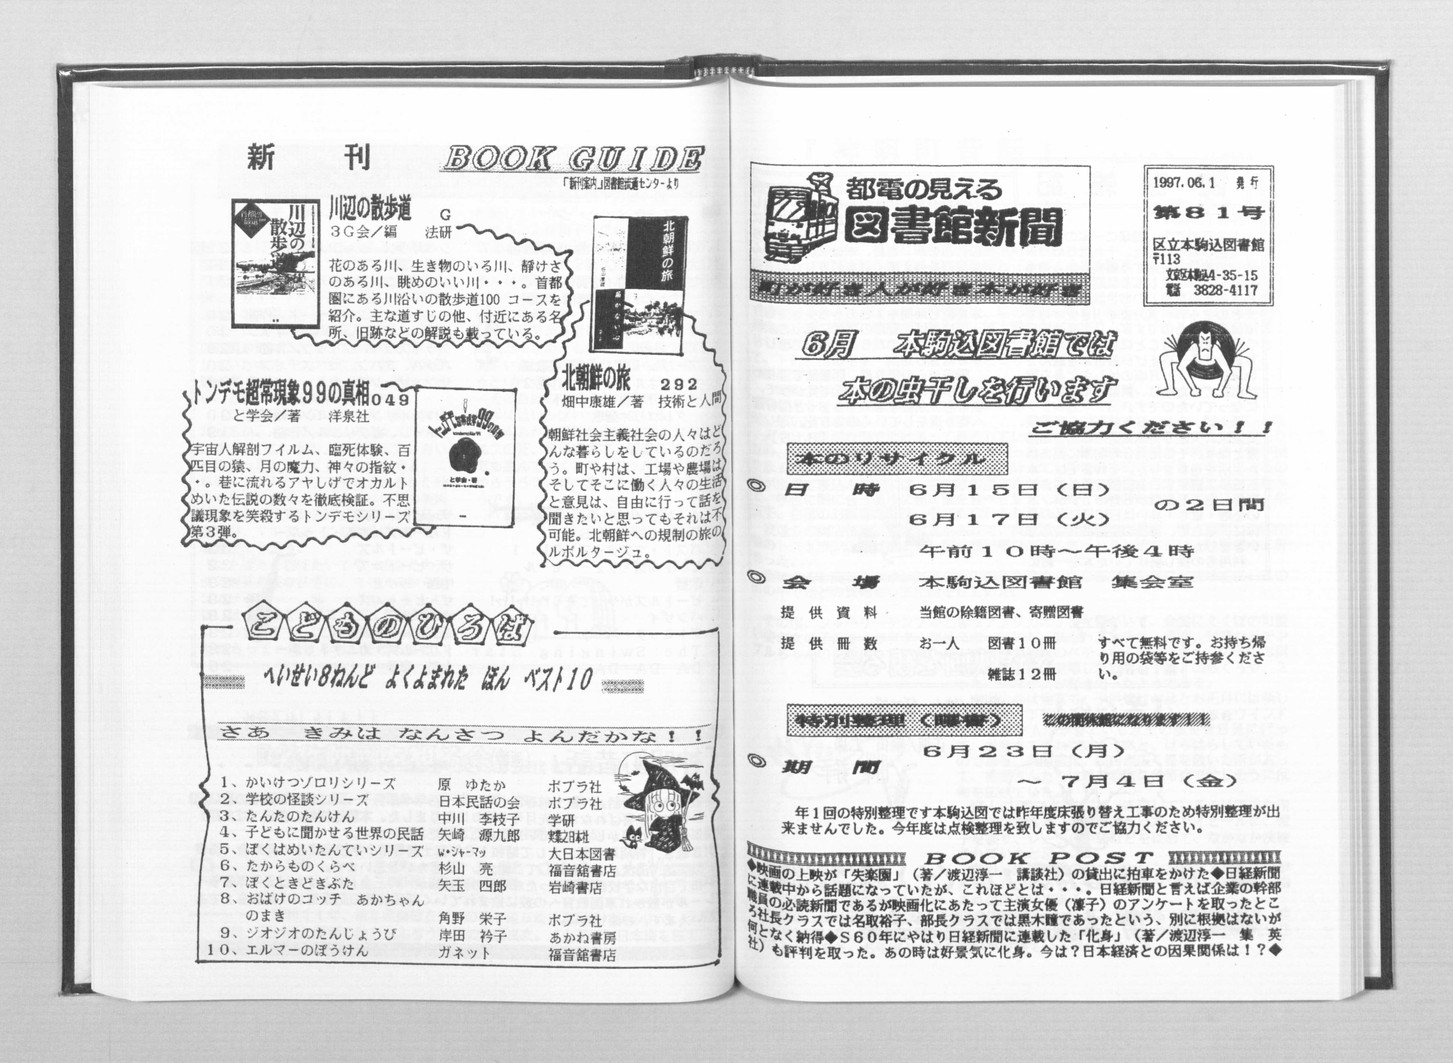 新 刊 BOOK GUIDE
「新刊案内」図書館流通センターより
川辺の散歩道 G
3G会／編 法研
花のある川、生き物のいる川、静けさ
のある川、眺めのいい川・・・。首都
圏にある川沿いの散歩道100 コースを
紹介。主な道すじの他、付近にある名
所、旧跡などの解説も載っている。
川辺の
散歩
北朝鮮の旅
北朝鮮の旅 292
畑中康雄／著 技術と人間
朝鮮社会主義社会の人々はど
んな暮らしをしているのだろ
う。町や村は、工場や農場は
そしてそこに働く人々の生活
と意見は、自由に行って話を
聞きたいと思ってもそれは不
可能。北朝鮮への規制の旅の
ルポルタージュ。
トンデモ超常現象99の真相 049
と学会／著 洋泉社
宇宙人解剖フイルム、臨死体験、百
匹目の猿、月の魔力、神々の指紋・
・。巷に流れるアヤしげでオカルト
めいた伝説の数々を徹底検証。不思
議現象を笑殺するトンデモシリーズ
第3弾。
と学会・著
こどものひろば
へいせい8ねんど よくよまれた ほん ベスト10
さあ きみは なんさつ よんだかな！！
1、かいけつゾロリシリーズ 原 ゆたか ポプラ社
2、学校の怪談シリーズ 日本民話の会 ポプラ社
3、たんたのたんけん 中川 李枝子 学研
4、子どもに聞かせる世界の民話 矢崎 源九郎 実業之日本社
5、ぼくはめいたんていシリーズ W・シャーマット 大日本図書
6、たからものくらべ 杉山 亮 福音舘書店
7、ぼくときどきぶた 矢玉 四郎 岩崎書店
8、おばけのコッチ あかちゃん
のまき 角野 栄子 ポプラ社
9、ジオジオのたんじょうび 岸田 衿子 あかね書房
10、エルマーのぼうけん ガネット 福音舘書店
都電の見える
図書館新聞
町が好き人が好き本が好き
1997.06.1 発行
第81号
区立本駒込図書館
〒113
文京区本駒込4-35-15
電話 3828-4117
6月 本駒込図書館では
本の虫干しを行います
ご協力ください！！
本のリサイクル
◎日 時 6月15日（日）
の2日間
6月17日（火）
午前10時〜午後4時
◎会 場 本駒込図書館 集会室
提 供 資 料 当館の除籍図書、寄贈図書
提 供 冊 数 お一人 図書10冊 すべて無料です。お持ち帰
り用の袋等をご持参くださ
雑誌12冊 い。
特別整理（曝書） この間休館になります！！
6月23日（月）
◎期 間
〜 7月4日（金）
年1回の特別整理です本駒込図では昨年度床張り替え工事のため特別整理が出
来ませんでした。今年度は点検整理を致しますのでご協力ください。
BOOK POST
◆映画の上映が「失楽園」（著／渡辺淳一 講談社）の貸出に拍車をかけた◆日経新聞
に連載中から話題になっていたが、これほどとは・・・。日経新聞と言えば企業の幹部
職員の必読新聞であるが映画化にあたって主演女優（凛子）のアンケートを取ったとこ
ろ社長クラスでは名取裕子、部長クラスでは黒木瞳であったという、別に根拠はないが
何となく納得◆S60年にやはり日経新聞に連載した「化身」（著／渡辺淳一 集 英
社）も評判を取った。あの時は好景気に化身。今は？日本経済との因果関係は！？◆